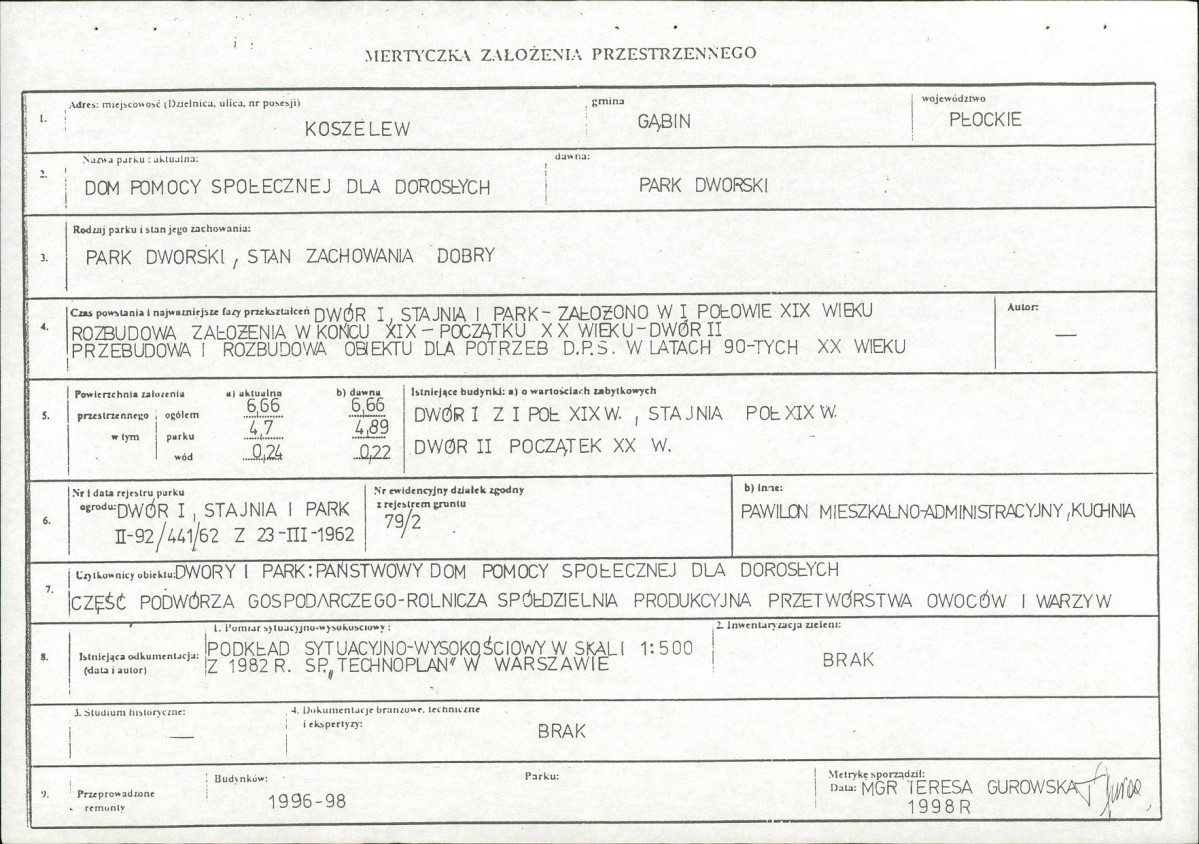 MERTYCZKA ZAŁOŻENIA PRZESTRZENNEGO
1. Adres: miejscowość (Dzielnica, ulica, nr posesji) gmina województwo
KOSZELEW GĄBIN PŁOCKIE
2. Nazwa parku : aktualna: dawna:
DOM POMOCY SPOŁECZNEJ DLA DOROSŁYCH PARK DWORSKI
3. Rodzaj parku i stan jego zachowania:
PARK DWORSKI, STAN ZACHOWANIA DOBRY
4. Czas powstania i najważniejsze fazy przekształceń DWÓR I, STAJNIA I PARK - ZAŁOŻONO W I POŁOWIE XIX WIEKU Autor:
ROZBUDOWA ZAŁOŻENIA W KOŃCU XIX - POCZĄTKU XX WIEKU - DWÓR II —
PRZEBUDOWA I ROZBUDOWA OBIEKTU DLA POTRZEB D.P.S. W LATACH 90-TYCH XX WIEKU
5. Powierzchnia założenia a) aktualna b) dawna Istniejące budynki: a) o wartościach zabytkowych
przestrzennego ogółem 6,66 6,66 DWÓR I Z I POŁ XIX W., STAJNIA POŁ XIX W.
w tym parku 4,7 4,89
wód 0,24 0,22 DWÓR II POCZĄTEK XX W.
6. Nr i data rejestru parku Nr ewidencyjny działek zgodny b) Inne:
ogrodu: DWÓR I, STAJNIA I PARK z rejestrem gruntu PAWILON MIESZKALNO-ADMINISTRACYJNY, KUCHNIA
II-92/441/62 Z 23-III-1962 79/2
7. Użytkownicy obiektu: DWORY I PARK: PAŃSTWOWY DOM POMOCY SPOŁECZNEJ DLA DOROSŁYCH
CZĘŚĆ PODWÓRZA GOSPODARCZEGO-ROLNICZA SPÓŁDZIELNIA PRODUKCYJNA PRZETWÓRSTWA OWOCÓW I WARZYW
8. Istniejąca odkumentacja: (data i autor)
1. Pomiar sytuacyjno-wysokościowy : 2. Inwentaryzacja zieleni:
PODKŁAD SYTUACYJNO-WYSOKOŚCIOWY W SKALI 1:500 BRAK
Z 1982 R. SP. „TECHNOPLAN" W WARSZAWIE
3. Studium historyczne: 4. Dokumentacje branżowe, techniczne
— i ekspertyzy: BRAK
9. Przeprowadzone remonty
Budynków: Parku: Metrykę sporządził:
1996-98 Data: MGR TERESA GUROWSKA
1998 R